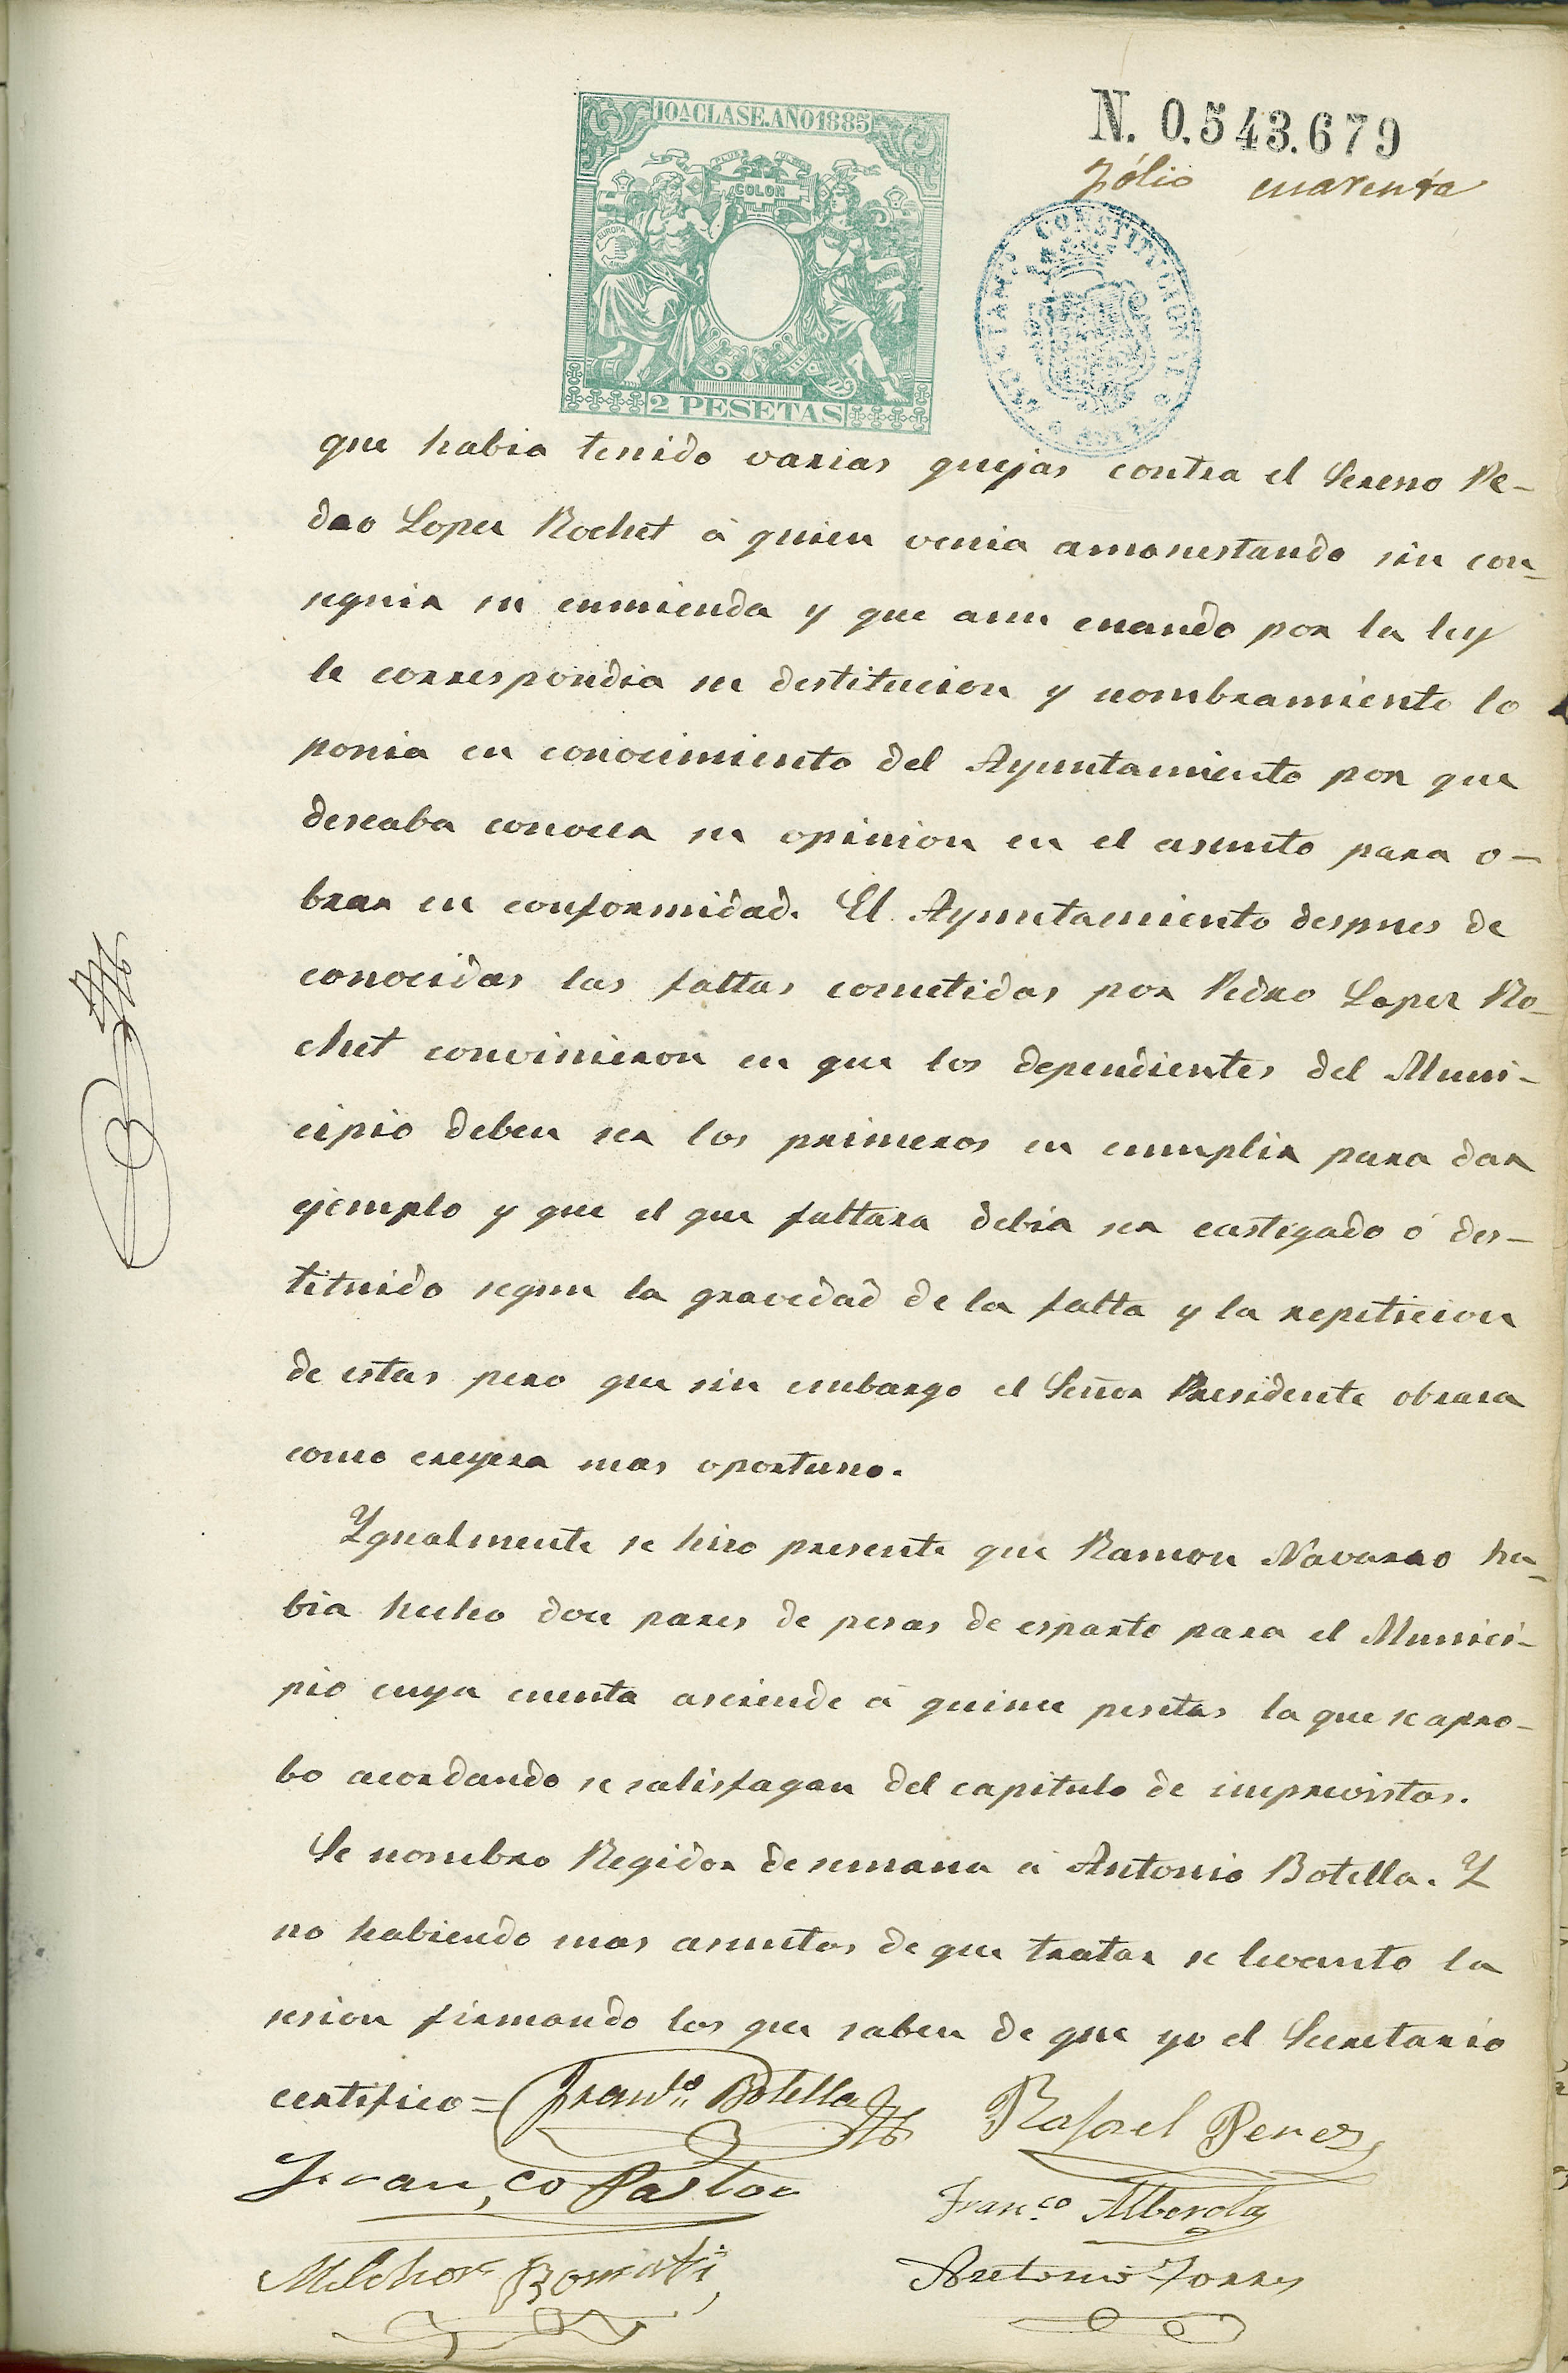 10ª CLASE. AÑO 1885
PLUS ULTRA
COLON
EUROPA
2 PESETAS
N. 0.543.679
Fólio cuarenta
AYUNTAMIENTO CONSTITUCIONAL
que habia tenido varias quejas contra el Sereno Pe-
dro Lopez Rochet á quien venia amonestando sin con-
seguir su enmienda y que aun cuando por la ley
le correspondia su destitucion y nombramiento lo
ponia en conocimiento del Ayuntamiento por que
deseaba conocer su opinion en el asunto para o-
brar en conformidad. El Ayuntamiento despues de
conocidas las faltas cometidas por Pedro Lopez Ro-
chet convinieron en que los dependientes del Muni-
cipio deben ser los primeros en cumplir para dar
ejemplo y que el que faltara debia ser castigado ó des-
tituido segun la gravedad de la falta y la repeticion
de estas pero que sin embargo el Señor Presidente obrara
como creyera mas oportuno.
Ygualmente se hizo presente que Ramon Navarro ha-
bia hecho doce pares de pesas de esparto para el Munici-
pio cuya cuenta asciende á quince pesetas la que se apro-
bo acordando se satisfagan del capitulo de imprevistos.
Se nombro Regidor de semana á Antonio Botella. Y
no habiendo mas asuntos de que tratar se levanto la
sesion firmando los que saben de que yo el Secretario
certifico = Franco Botella Rafael Perez
Franco Pastor Franco Alberola
Melchor Bonmati Antonio Torres